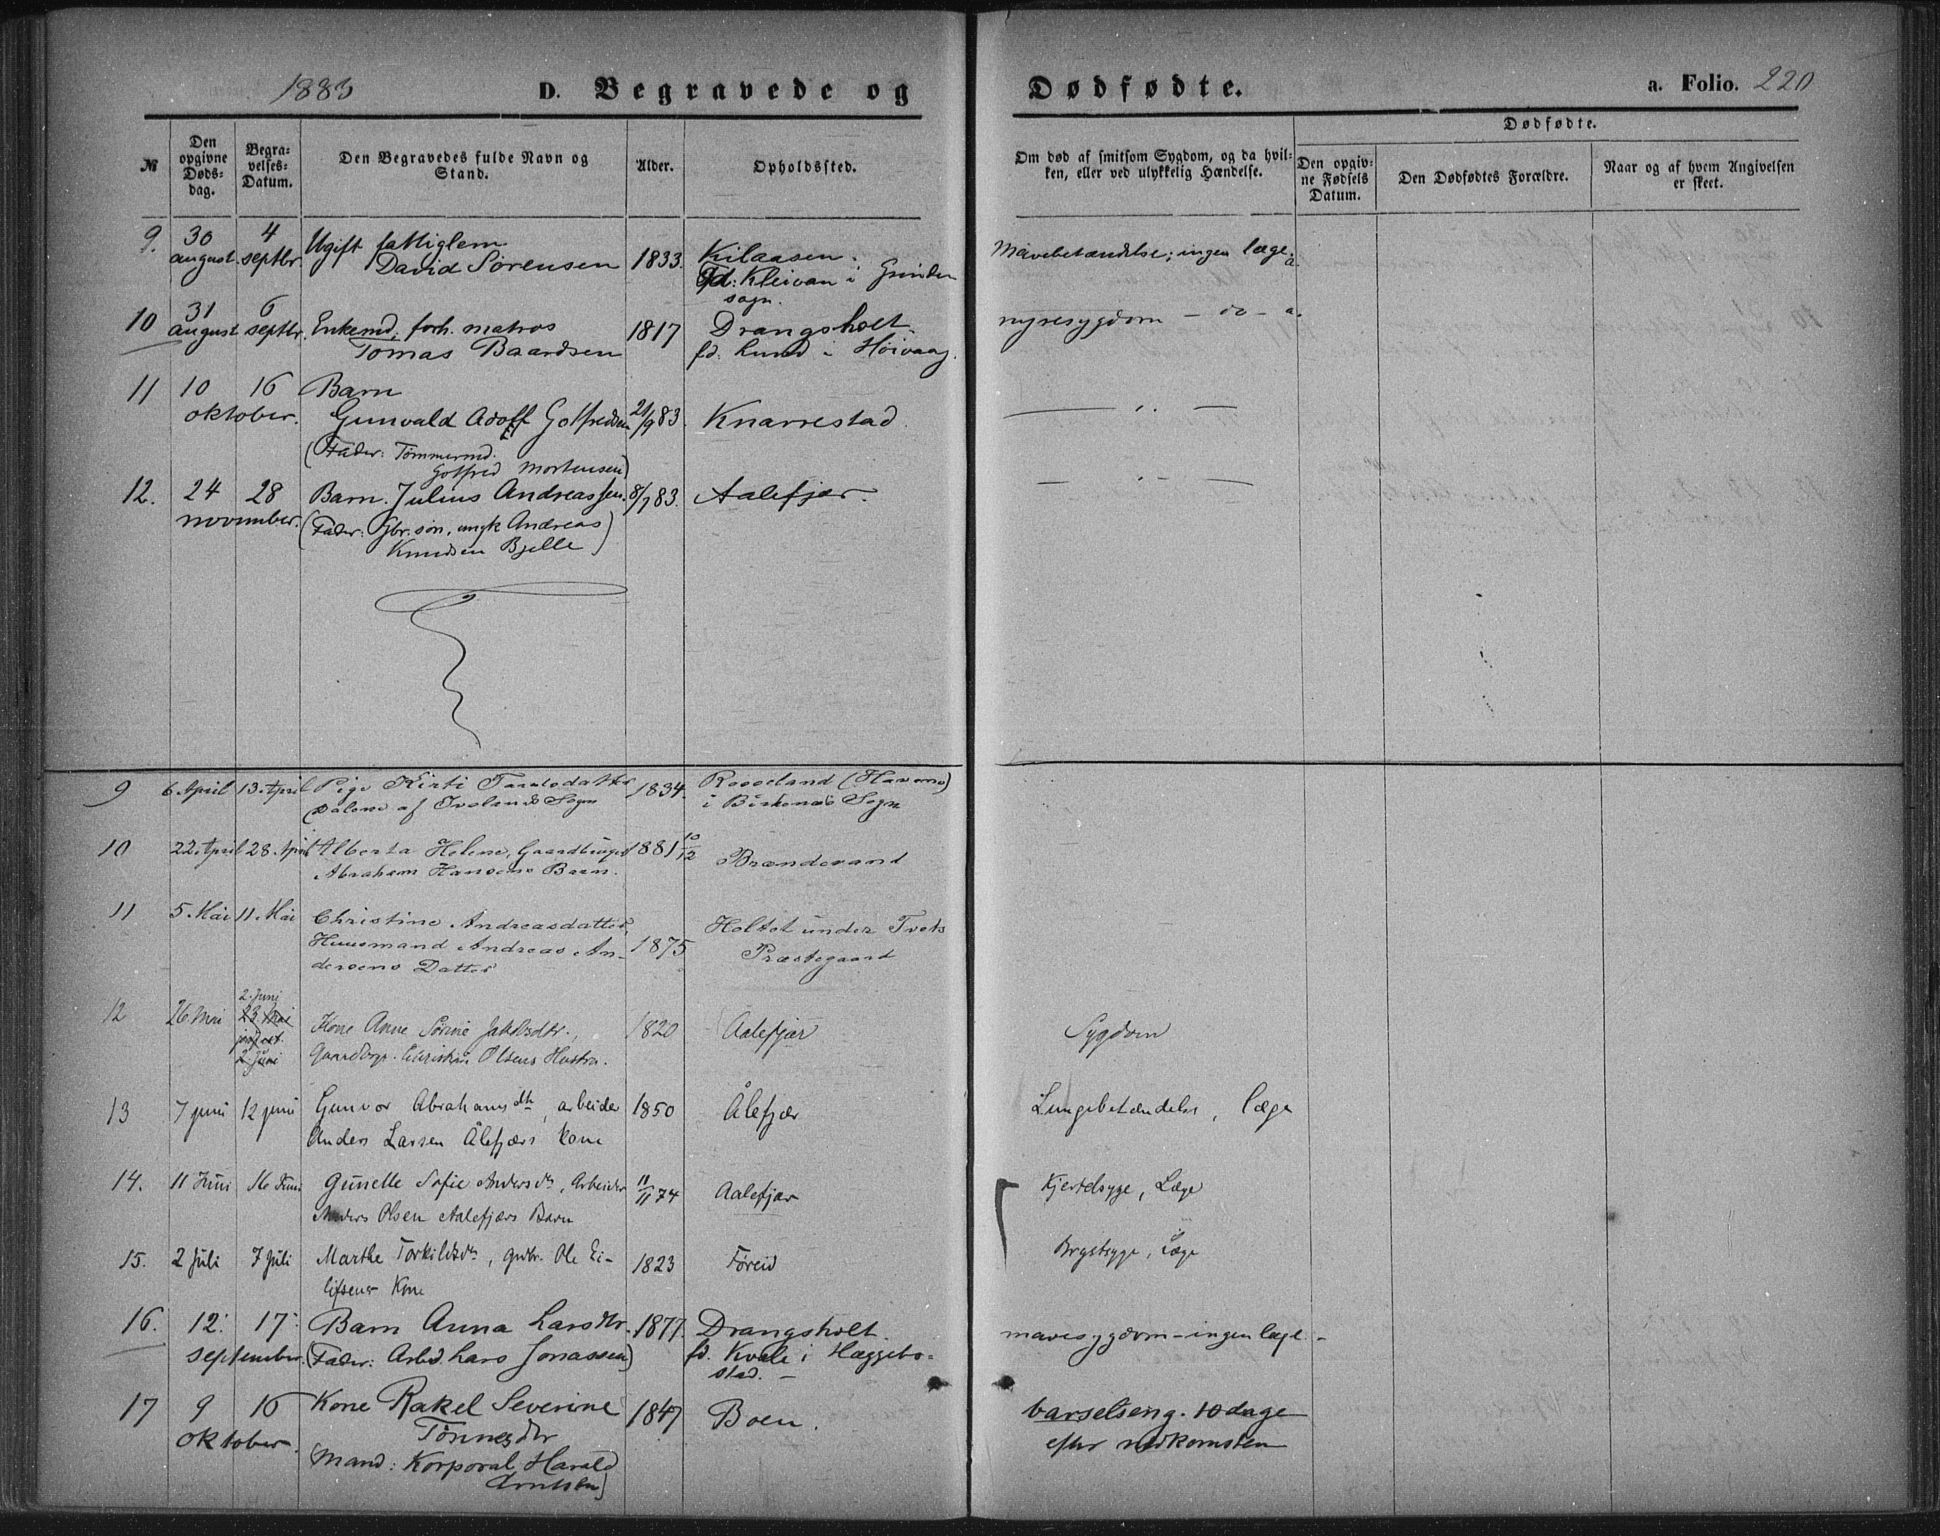 1883 D. Begravede og Dødfødte. a. Folio. 220
№ Den opgivne Døds-dag. Begra-velses-Datum. Den Begravedes fulde Navn og Stand. Alder. Opholdssted. Om død af smitsom Sygdom, og da hvil-ken, eller ved ulykkelig Hændelse. Dødfødte. Den opgiv-ne Fødsels Datum. Den Dødfødtes Forældre. Naar og af hvem Angivelsen er skeet.
9. 30 august 4 septbr. Ugift fattiglem
David Sørensen 1833. Kilaasen.
fd: Kleivan i
sogn. Mavebetændelse; ingen læge. a.
10 31 august 6 septbr. Enkemd. forh. matros
Tomas Baardsen 1817 Drangsholt.
fd. Lund i Høivaag. nyresygdom – do – a.
11 10 16 oktober. Barn
Gunvald Adolf Gotfredsen 21/9 83. Knarrestad.
(Fader: Tømmermd.
Gotfred Mortensen)
12. 24 28 november. Barn. Julius Andreassen. 8/7 83. Aalefjær.
(Fader: Gbr. søn, ungk Andreas
Knudsen Bjelle)
9 6 April 13 April Pige Kirti Taraldsdatter
Dalene af Ivelands Sogn 1834. Rosseland (Havene)
i Birkenes Sogn
10 22 April 28. April Alberta Helene, Gaardbruger
Abraham Hansens Barn. 1881 10/12 Brændevand
11 5. Mai 11. Mai Christine Andreasdatter,
Huusmand Andreas An-
dersens Datter 1875 Holtet under Tvets
Præstegaard
12 26 Mai 2. Juni
23 Mai
2. Juni Kone Anne Sørine Jakobsdtr.,
Gaardbrgr. Christian Olsens Hustru. 1820 Aalefjær Sygdom
13 7 juni 12 juni Gunvor Abrahamsdtr, arbeider
Anders Larsen Ålefjærs kone 1850 Ålefjær Lungebetændelse, læge
14. 11 Juni 16 Juni Gunelle Sofie Andersdr, Arbeider
Anders Olsen Aalefjærs Barn 11/11 74 Aalefjær Kjertelsyge, Læge
15. 2 Juli 7 Juli Marthe Torkildsdr, gdbr. Ole Ei-
lifsens Kone 1823 Føreid Brystsyge, Læge
16. 12. 17. september. Barn Anna Larsdtr. 1877. Drangsholt.
(Fader: Arbd. Lars Jonassen) fd. Kvale i Hæggebo-
stad. – mavesygdom – ingen læge. –
17 9 16 oktober. Kone Rakel Severine
Tønnesdtr 1847 Boen. barselseng. 10 dage
efter nedkomsten
(Mand: Korporal Harald
Arntsen)